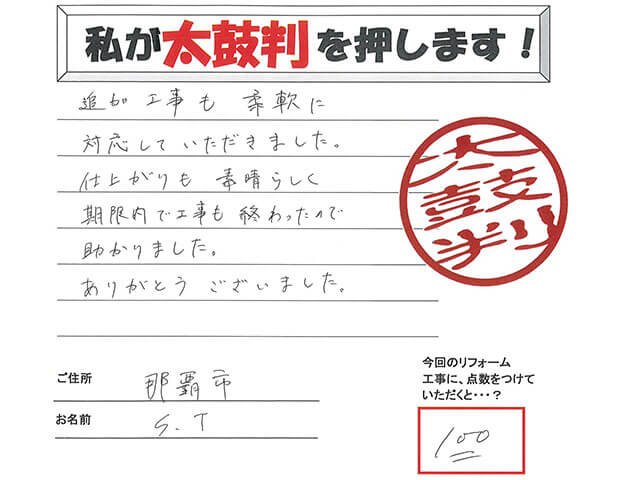 私が太鼓判を押します！
追加工事も 柔軟に
対応していただきました。
仕上がりも 素晴らしく
期限内で工事も 終わったので
助かりました。
ありがとう ございました。
太鼓判
ご住所 那覇市
お名前 S.T
今回のリフォーム
工事に、点数をつけて
いただくと・・・？
100